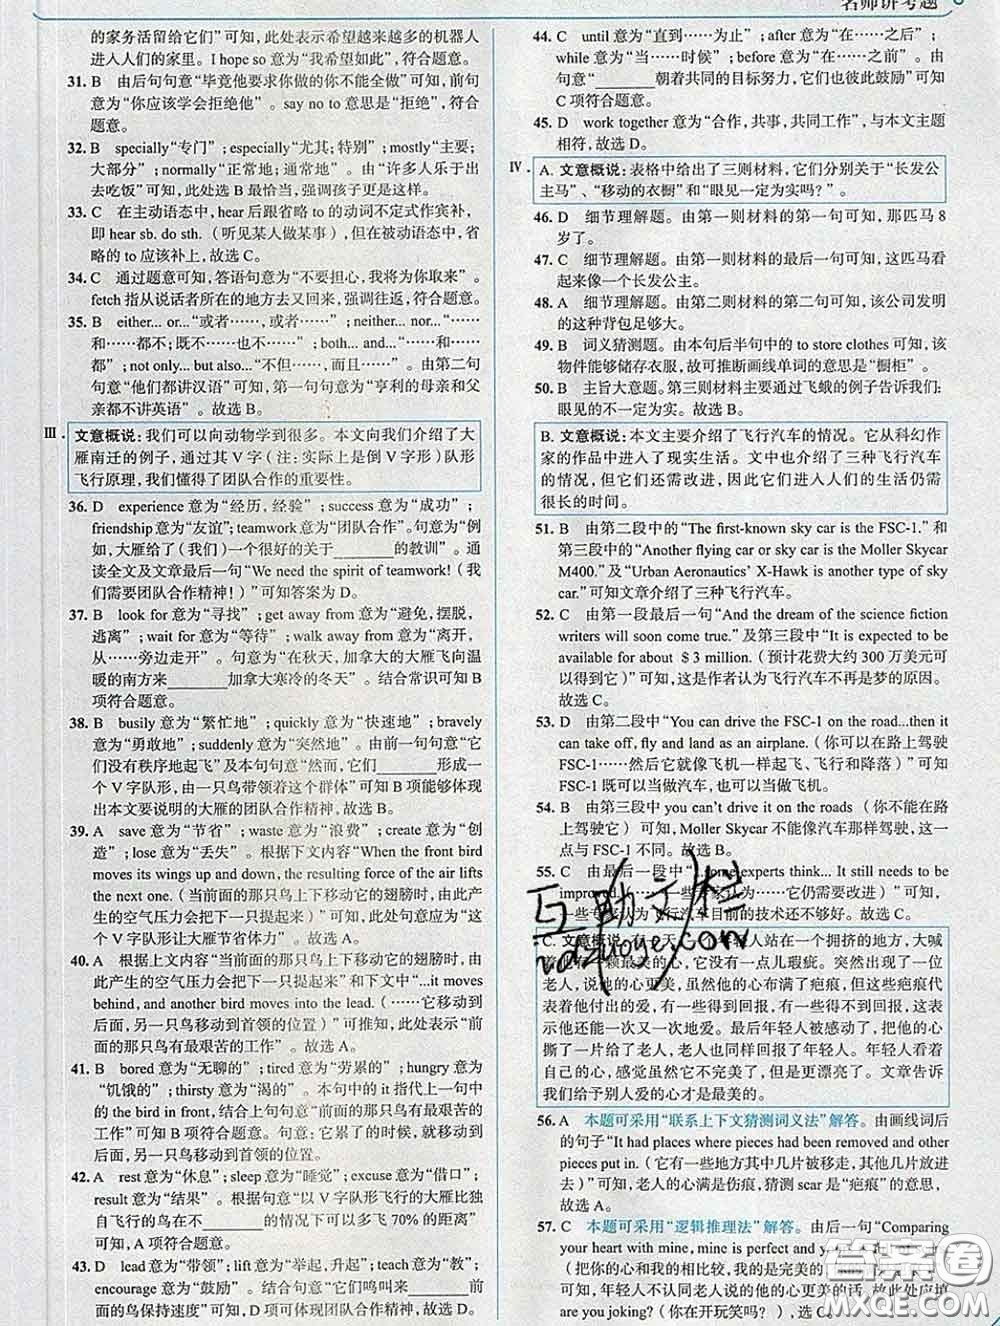 名师讲考题
的家务活留给它们”可知，此处表示希望越来越多的机器人
进入人们的家里。I hope so 意为“我希望如此”，符合题意。
31. B　由后句句意“毕竟他要求你做的你不能全做”可知，前句
意为“你应该学会拒绝他”。say no to 意思是“拒绝”，符合
题意。
32. B　specially“专门”；especially“尤其；特别”；mostly“主要；
大部分”；normally“正常地；通常地”。由“许多人乐于出
去吃饭”可知，此处选 B 最恰当，强调孩子更是这样。
33. C　在主动语态中，hear 后跟省略 to 的动词不定式作宾补，
即 hear sb. do sth.（听见某人做某事），但在被动语态中，省
略的 to 应该补上，故选 C。
34. C　通过题意可知，答语句意为“不要担心，我将为你取来”。
fetch 指从说话者所在的地方去又回来，强调往返，符合题意。
35. B　either... or...“或者……，或者……”；neither... nor...“……
和……都不；既不……也不……”；both... and...“……和……
都”；not only... but also...“不但……，而且……”。由第二句
句意“他们都讲汉语”可知，第一句句意为“亨利的母亲和父
亲都不讲英语”。故选 B。
Ⅲ. 文意概说：我们可以向动物学到很多。本文向我们介绍了大
雁南迁的例子，通过其 V 字（注：实际上是倒 V 字形）队形
飞行原理，我们懂得了团队合作的重要性。
36. D　experience 意为“经历，经验”；success 意为“成功”；
friendship 意为“友谊”；teamwork 意为“团队合作”。句意为“例
如，大雁给了（我们）一个很好的关于________的教训”。通
读全文及文章最后一句“We need the spirit of teamwork!（我
们需要团队合作精神！）”可知答案为 D。
37. B　look for 意为“寻找”；get away from 意为“避免，摆脱，
逃离”；wait for 意为“等待”；walk away from 意为“离开，
从……旁边走开”。句意为“在秋天，加拿大的大雁飞向温
暖的南方来________加拿大寒冷的冬天”。结合常识可知 B
项符合题意。
38. B　busily 意为“繁忙地”；quickly 意为“快速地”；bravely
意为“勇敢地”；suddenly 意为“突然地”。由前一句句意“它
们没有秩序地起飞”及本句句意“然而，它们________形成一
个 V 字形，由一只鸟带领着这个群体”可知 B 项能够体现
出本文要说明的大雁的团队合作精神，故选 B。
39. A　save 意为“节省”；waste 意为“浪费”；create 意为“创
造”；lose 意为“丢失”。根据下文内容“When the front bird
moves its wings up and down, the resulting force of the air lifts
the next one.（当前面的那只鸟上下移动它的翅膀时，由此产
生的空气压力会把下一只提起来）”可知，此处句意应为“这
个 V 字队形让大雁节省体力”。故选 A。
40. A　根据上文内容“当前面的那只鸟上下移动它的翅膀时，由
此产生的空气压力会把下一只提起来”和下文中“...it moves
behind, and another bird moves into the lead.（……它移动到
后面，另一只鸟移动到首领的位置）”可推知，此处表示“前
面的那只鸟有最艰苦的工作”。故选 A。
41. B　bored 意为“无聊的”；tired 意为“劳累的”；hungry 意为
“饥饿的”；thirsty 意为“渴的”。本句中的 it 指代上一句中
的 the bird in front，结合上句句意“前面的那只鸟有最艰苦的
工作”可知 B 项符合题意。句意：它累了的时候，就移动到
后面，另一只鸟移动到首领的位置。
42. A　rest 意为“休息”；sleep 意为“睡觉”；excuse 意为“借口”；
result 意为“结果”。根据句意“以 V 字队形飞行的大雁比独
自飞行的鸟在不________的情况下可以多飞 70% 的距离”
可知，A 项符合题意。
43. D　lead 意为“带领”；lift 意为“举起，升起”；teach 意为“教”；
encourage 意为“鼓励”。结合句意“它们鸣叫来________前
面的鸟保持速度”可知 D 项可体现团队合作精神。故选 D。
44. C　until 意为“直到……为止”；after 意为“在……之后”；
while 意为“当……时候”；before 意为“在……之前”。由
句意“________朝着共同的目标努力，它们也彼此鼓励”可知
C 项符合题意。
45. D　work together 意为“合作，共事，共同工作”，与本文主题
相符，故选 D。
Ⅳ. A. 文意概说：表格中给出了三则材料，它们分别关于“长发公
主马”、“移动的衣橱”和“眼见一定为实吗？”。
46. D　细节理解题。由第一则材料的第一句可知，那匹马 8
岁了。
47. C　细节理解题。由第一则材料的最后一句可知，这匹马看
起来像一个长发公主。
48. A　细节理解题。由第二则材料的第二句可知，该公司发明
的这种背包足够大。
49. B　词义猜测题。由本句后半句中的 to store clothes 可知，该
物件能够储存衣服，故可推断画线单词的意思是“橱柜”。
50. B　主旨大意题。第三则材料主要通过飞蛾的例子告诉我们：
眼见的不一定为实。故选 B。
B. 文意概说：本文主要介绍了飞行汽车的情况。它从科幻作
家的作品中进入了现实生活。文中介绍了三种飞行汽车
的情况，但它们还需改进，因此它们进入人们的生活仍需
很长的时间。
51. B　由第二段中的“The first-known sky car is the FSC-1.”和
第三段中的“Another flying car or sky car is the Moller Skycar
M400.”及“Urban Aeronautics’ X-Hawk is another type of sky
car.”可知文章介绍了三种飞行汽车。
52. C　由第一段最后一句“And the dream of the science fiction
writers will soon come true.”及第三段中“It is expected to be
available for about ＄3 million.（预计花费大约 300 万美元可
以得到它）”可知，这是作者认为飞行汽车不再是梦的原因。
故选 C。
53. D　由第二段中“You can drive the FSC-1 on the road...then it
can take off, fly and land as an airplane.（你可以在路上驾驶
FSC-1……然后它就像飞机一样起飞、飞行和降落）”可知
FSC-1 既可以当做汽车，也可以当做飞机。
54. B　由第三段中 you can’t drive it on the roads（你不能在路
上驾驶它）可知，Moller Skycar 不能像汽车那样驾驶，这一
点与 FSC-1 不同。故选 B。
55. C　由最后一段中“...some experts think... It still needs to be
improved.（一些专家认为……它仍需要改进）”可知，
一些专家认为飞行汽车目前的技术还不够好。故选 C。
C. 文意概说：有一天，一个年轻人站在一个拥挤的地方，大喊
着他有一颗最美的心，它没有一点儿瑕疵。突然出现了一位
老人，说他的心更美，虽然他的心布满了疤痕，但这些疤痕代
表着他付出的爱，有一些得到回报，有一些得不到回报，这表
示他还能一次又一次地爱。最后年轻人被感动了，把他的心
撕了一片给了老人，老人也同样回报了年轻人。年轻人看着
自己的心，感觉虽然它不完美了，但是更漂亮了。文章告诉
我们给予别人爱的心才是最美的。
56. A　本题可采用“联系上下文猜测词义法”解答。由画线词后
的句子“It had places where pieces had been removed and other
pieces put in.（它有一些地方其中几片被移走，其他几片放进
去）”可知，老人的心满是伤痕，猜测 scar 是“疤痕”的意思，
故选 A。
57. C　本题可采用“逻辑推理法”解答。由后一句“Comparing
your heart with mine, mine is perfect and
（把你的心和我的相比，我的
可知，年轻人不同意老人说的他的心更美的话，故此处应填
are you joking?（你在开玩笑吗？），选 C。
互助文档
hdzuoye.com
答案圈
MXQE.COM